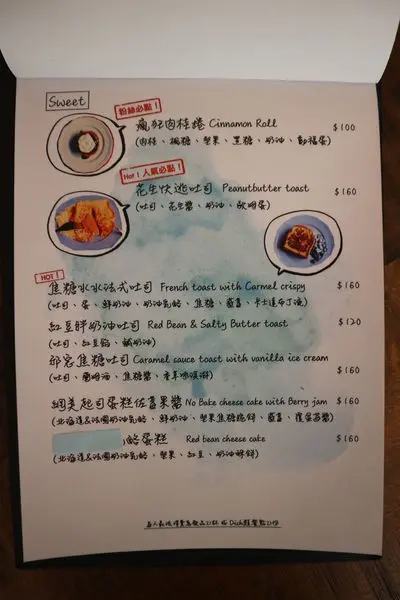 Sweet
粉絲必點！
瘋狂肉桂捲 Cinnamon Roll $100
(肉桂、楓糖、堅果、黑糖、奶油、動福蛋)
Hot！人氣必點！
花生快逃吐司 Peanutbutter toast $160
(吐司、花生醬、奶油、
HOT！
焦糖水水法式吐司 French toast with Carmel crispy $160
(吐司、蛋、鮮奶油、奶油乳酪、焦糖、藍莓、卡士達布丁液)
紅豆鮮奶油吐司 Red Bean & Salty Butter toast $120
(吐司、紅豆餡、鹹奶油)
焦糖吐司 Caramel sauce toast with vanilla ice cream
(吐司、蘭姆酒、焦糖醬、香草嘰淇淋) $160
網美起司蛋糕佐莓果醬 No Bake cheese cake with Berry jam $160
(北海道&法國奶油乳酪、鮮奶油、堅果焦糖脆餅、藍莓、覆盆莓醬)
酪蛋糕 Red bean cheese cake $160
(北海道&法國奶油乳酪、堅果、紅豆、奶油酥餅)